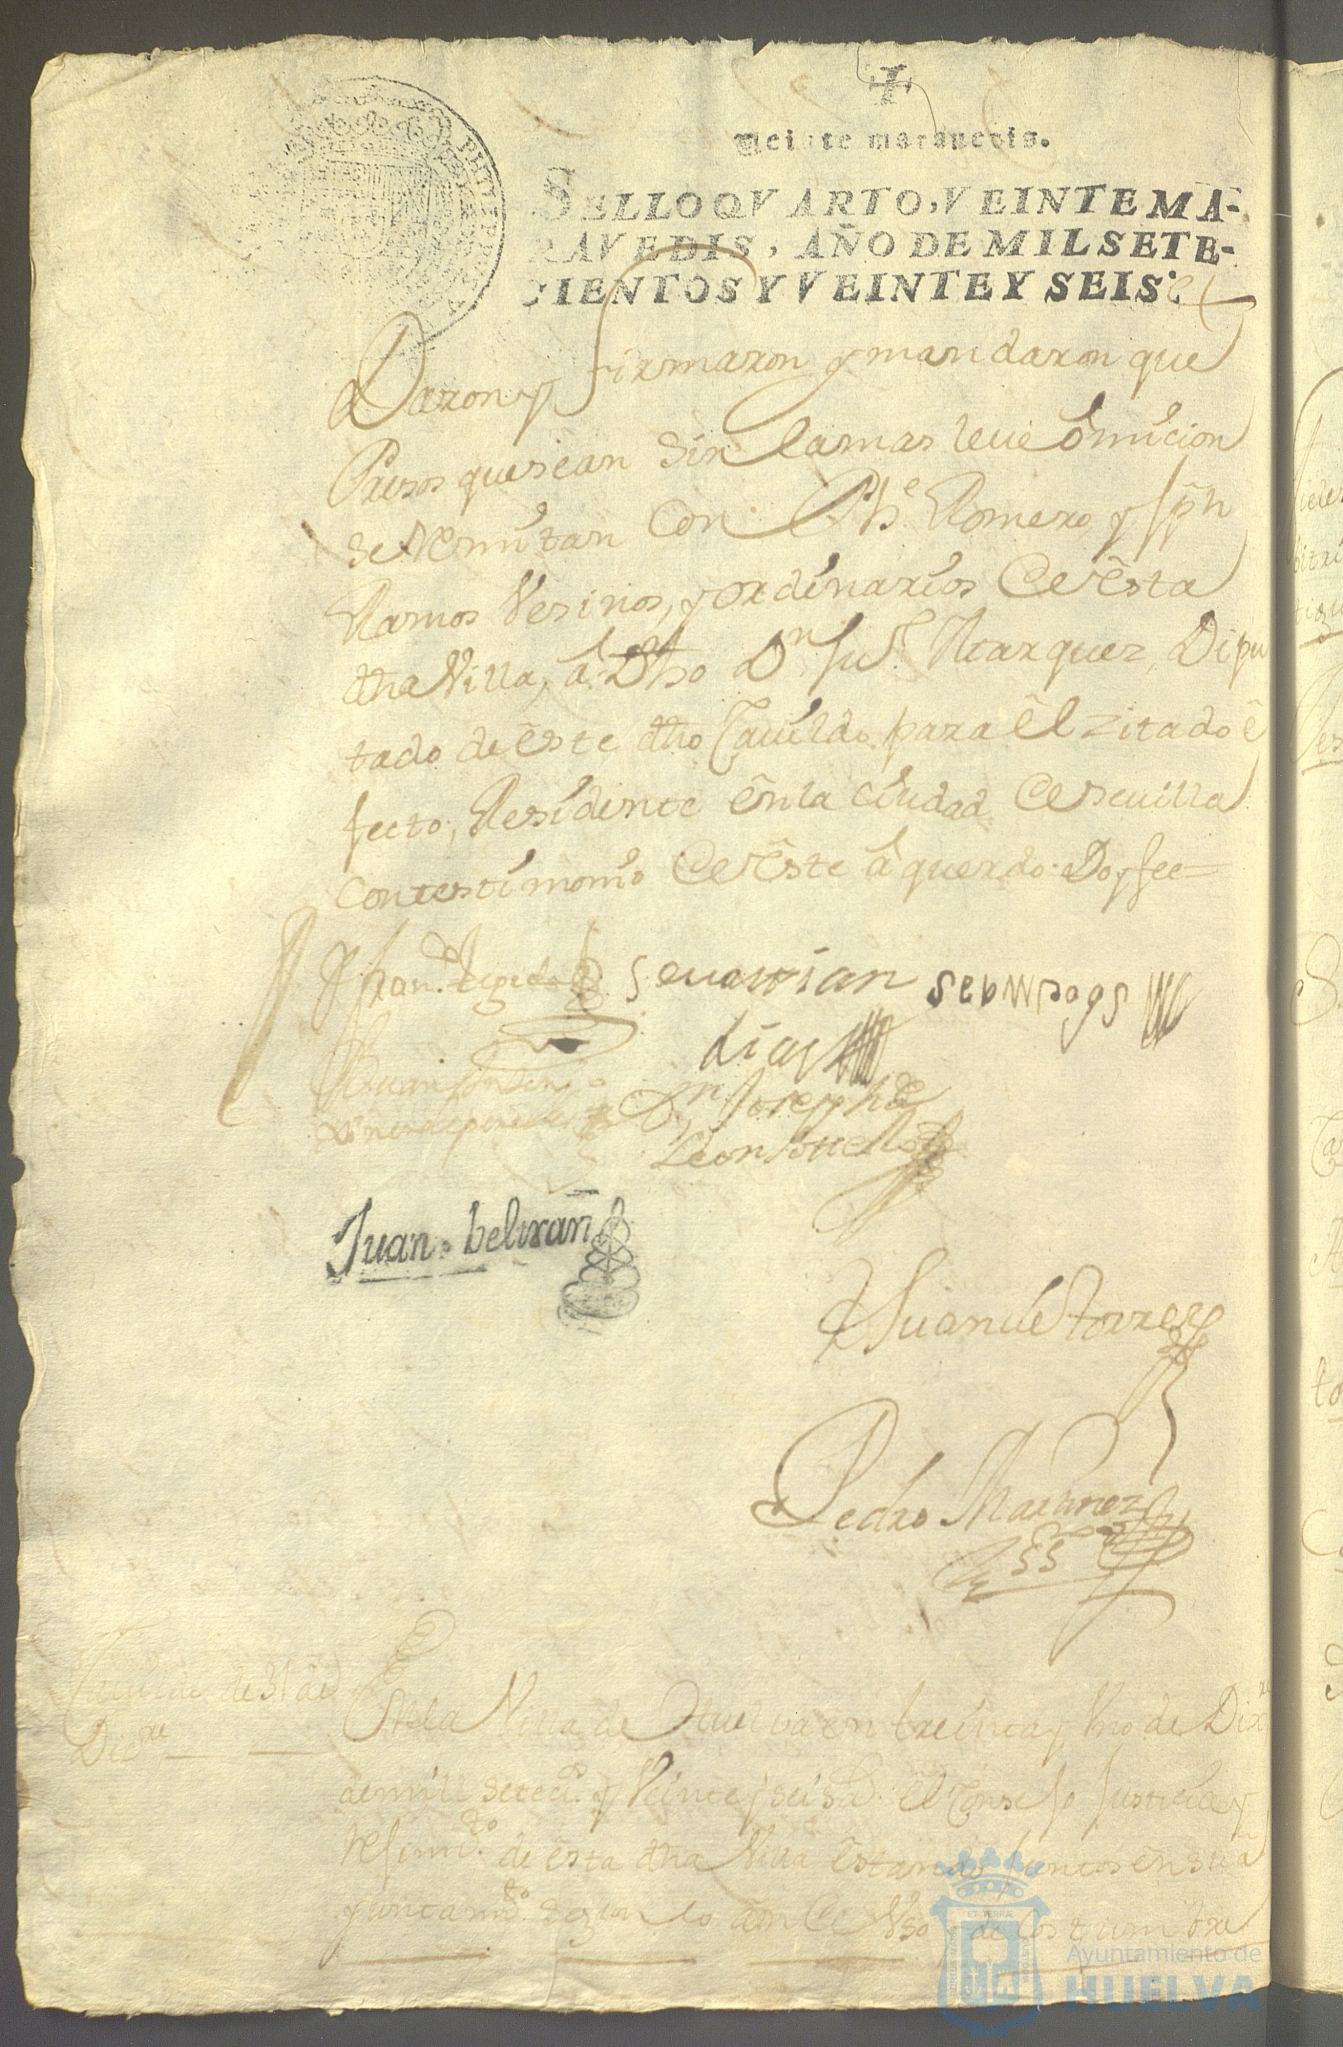 Veinte maravedis.
SELLO QVARTO, VEINTE MA-
RAVEDIS, AÑO DE MIL SETE-
CIENTOS Y VEINTE Y SEIS.
Daron y firmaron y mandaron que
Presos que sean sin la mas leue omicion
se Remitan con Phe Romero, y Jph
Ramos Vesinos, y ordinarios de esta
dha Villa, a Dho Dn Marquez, Dipu
tado de este dho Cauildo para el zitado e
fecto, Residente en la ciudad de seuilla
con testimonio de este aquerdo. Doy fee =
seuastian
dias
Dn Joseph de
Leon
Juan beltran
Juan de torres
Pedro Martinez
Cauildo de 31 de
Dizre
En la Villa de Huelva en treinta y Uno de Dizre
de mill setecs. y Veinte y seis as. el Conselo Justicia y
Resimto. de esta dha Villa estando juntos en su a
yuntamto. segun lo an de Uso y de Costumbre
Ayuntamiento de
HUELVA